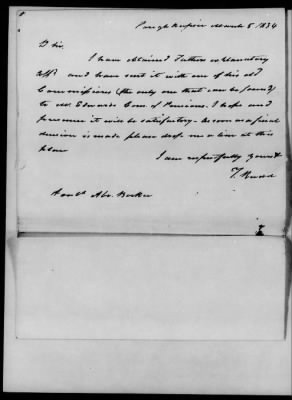 Poughkeepsie March 5. 1834
D Sir,
I have obtained Fathers explanatory
afft and have sent it with one of his old
Commissions (the only one that can be found)
to Mr. Edwards Com of Pensions. I hope and
presume it will be satisfactory. As soon as a final
decision is made please drop me a line at this
place
I am respectfully yours &
T. Rudd
Honble Abr. Bockee